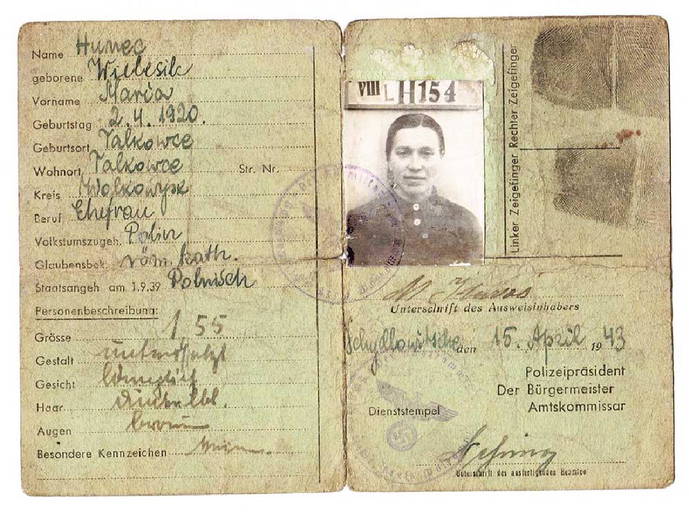 Name Hunec
geborene
Vorname Maria
Geburtstag 2.4.1920.
Geburtsort Jalkowce
Wohnort Jalkowce Str. Nr.
Kreis Wolkowysk
Beruf Ehefrau
Volkstumszugeh. Polin
Glaubensbek. röm. kath.
Staatsangeh am 1.9.39 Polnisch
Personenbeschreibung:
Grösse 1 55
Gestalt untersetzt
Gesicht länglich
Haar dunkelbl.
Augen braun
Besondere Kennzeichen
VIII L H154
Linker Zeigefinger Rechter Zeigefinger
Unterschrift des Ausweisinhabers
den 15. April 1943
Polizeipräsident
Der Bürgermeister
Amtskommissar
Dienststempel
Unterschrift des ausfertigenden Beamten